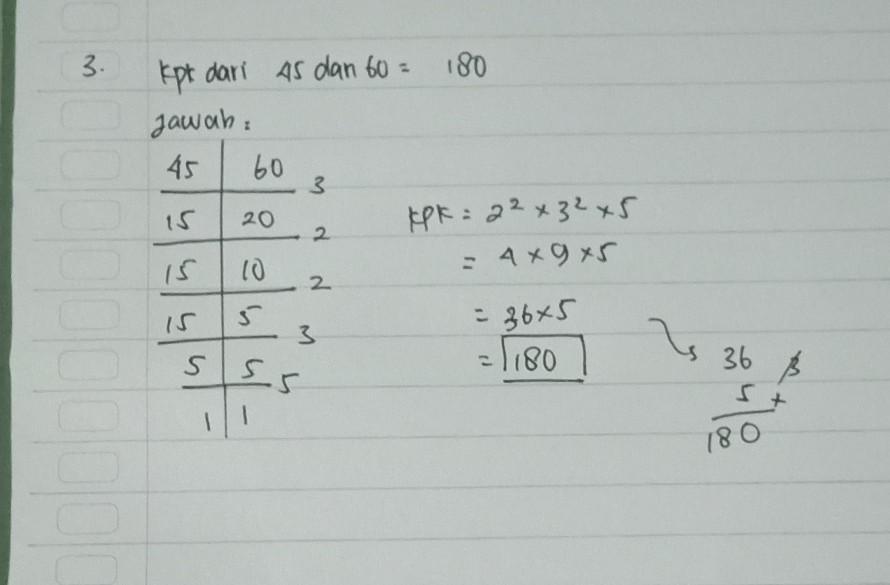 3. Kpk dari 45 dan 60 = 180
Jawab :
45 | 60 3
15 | 20 2
15 | 10 2
15 | 5 3
5 | 5 5
1 | 1
KPK = 2² × 3² × 5
= 4 × 9 × 5
= 36 × 5
= 180
36 3
5 ×
180